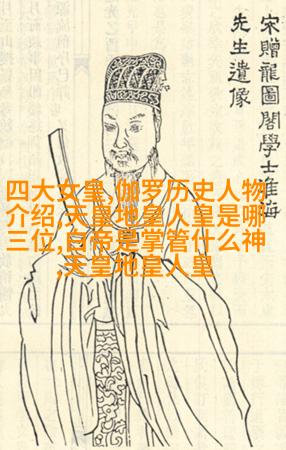 宋贈龍圖閣學士淮海
先生遺像
四大女皇,伽罗历史人物
介绍,天皇地皇人皇是哪
三位,白帝是掌管什么神
,天皇地皇人皇